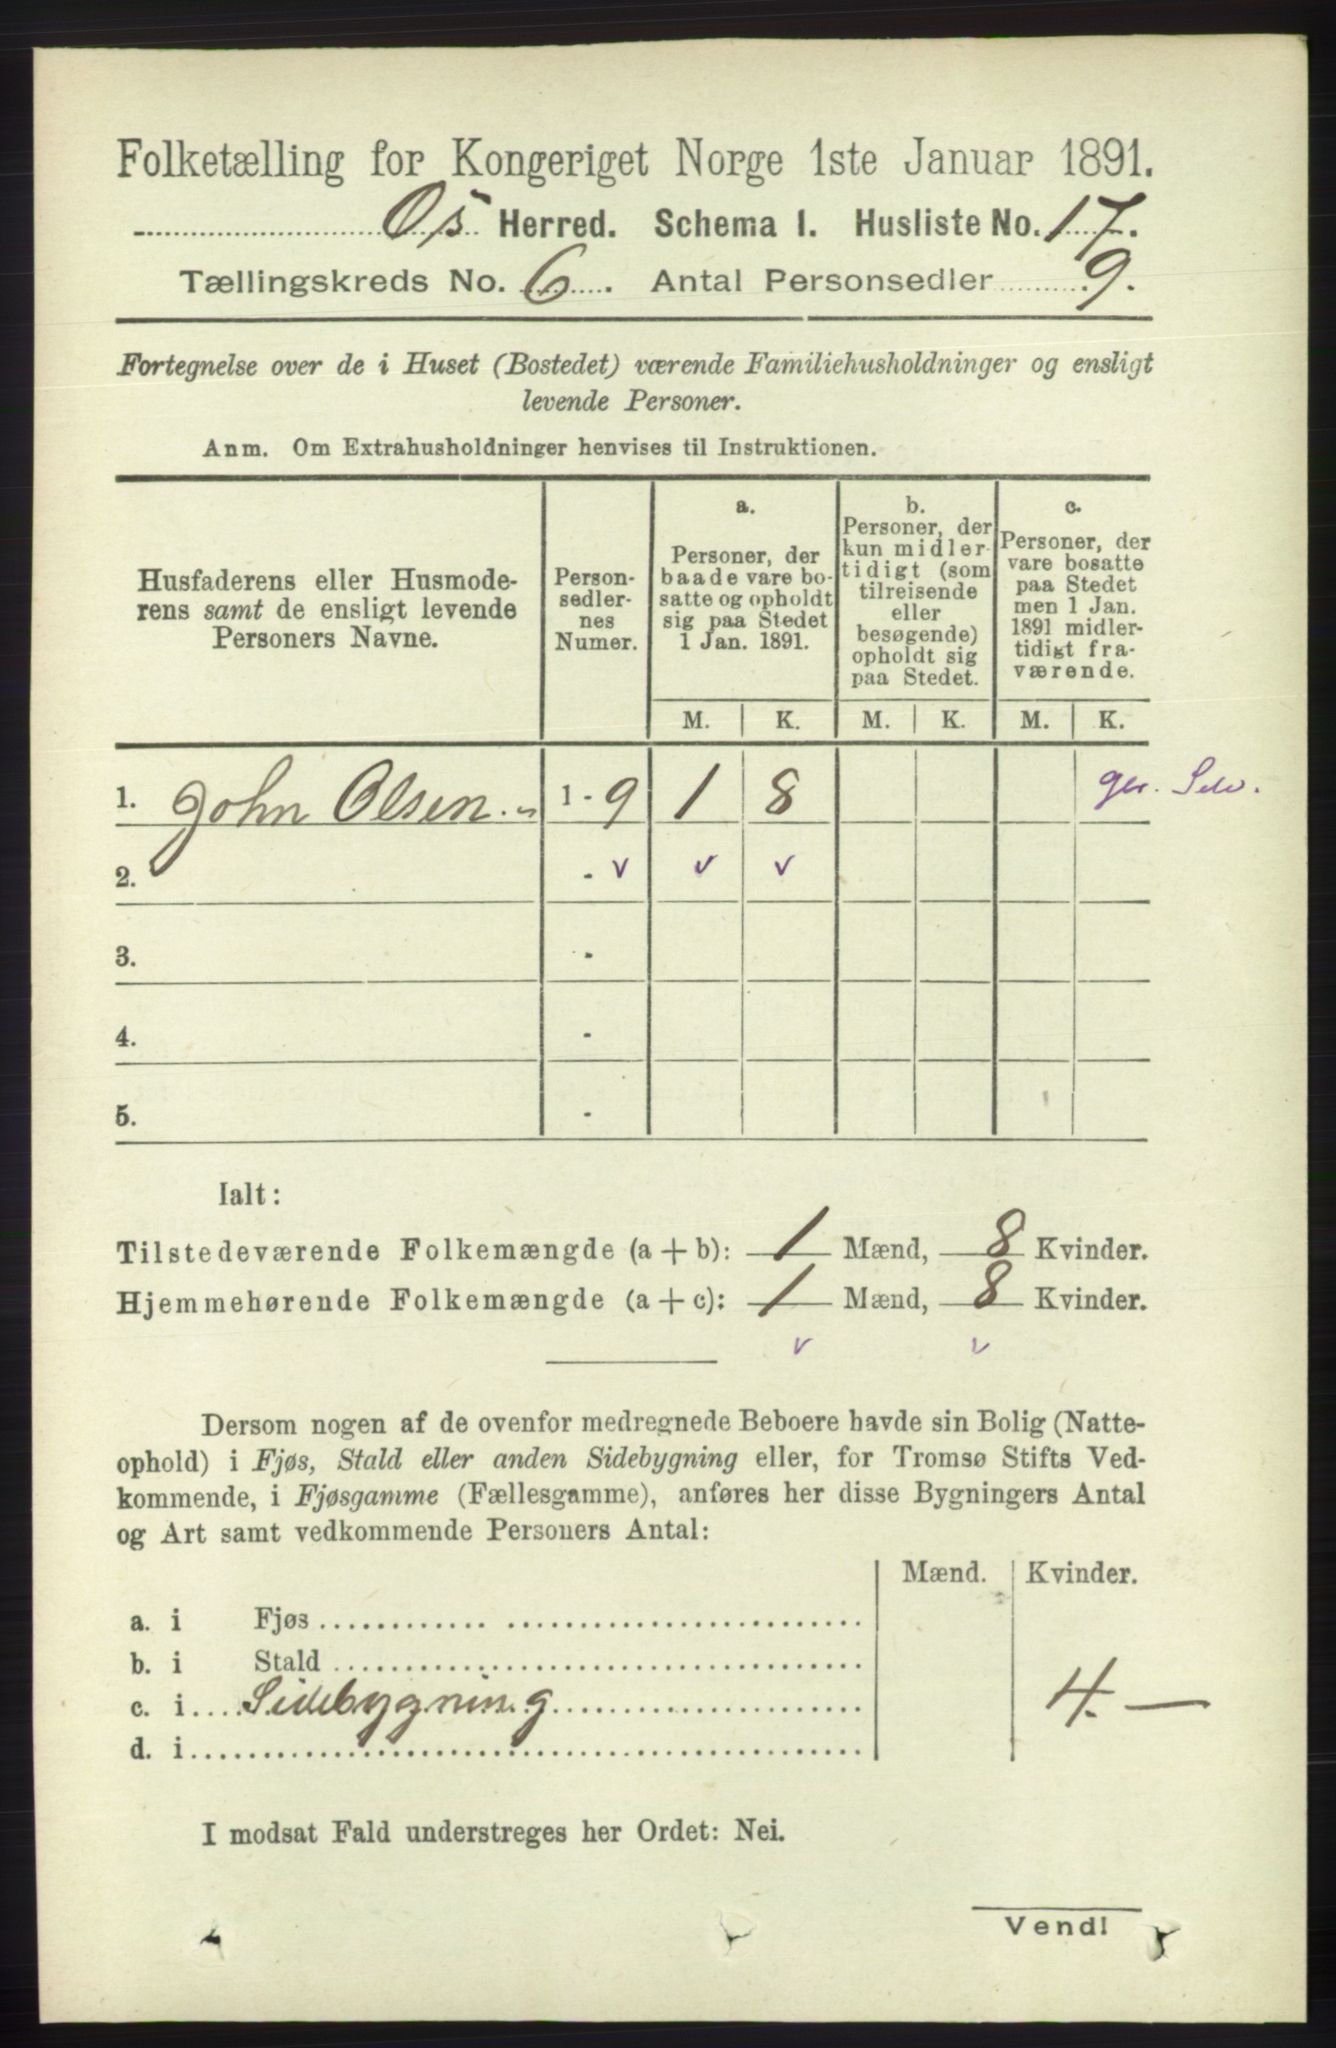 Folketælling for Kongeriget Norge 1ste Januar 1891.
Os Herred. Schema I. Husliste No. 17.
Tællingskreds No. 6. Antal Personsedler 9.
Fortegnelse over de i Huset (Bostedet) værende Familiehusholdninger og ensligt
levende Personer.
Anm. Om Extrahusholdninger henvises til Instruktionen.
Husfaderens eller Husmode-
rens samt de ensligt levende
Personers Navne.
Person-
sedler-
nes
Numer.
a.
Personer, der
baade vare bo-
satte og opholdt
sig paa Stedet
1 Jan. 1891.
b.
Personer, der
kun midler-
tidigt (som
tilreisende
eller
besøgende)
opholdt sig
paa Stedet.
c.
Personer, der
vare bosatte
paa Stedet
men 1 Jan.
1891 midler-
tidigt fra-
værende.
M. K. M. K. M. K.
1. John Olsen. 1 - 9 1 8
2. - v v v
3. -
4. -
5. -
Ialt:
Tilstedeværende Folkemængde (a + b): 1 Mænd, 8 Kvinder.
Hjemmehørende Folkemængde (a + c): 1 Mænd, 8 Kvinder.
v v
Dersom nogen af de ovenfor medregnede Beboere havde sin Bolig (Natte-
ophold) i Fjøs, Stald eller anden Sidebygning eller, for Tromsø Stifts Ved-
kommende, i Fjøsgamme (Fællesgamme), anføres her disse Bygningers Antal
og Art samt vedkommende Personers Antal:
Mænd. Kvinder.
a. i Fjøs
b. i Stald
c. i Sidebygning 4. —
d. i
I modsat Fald understreges her Ordet: Nei.
Vend!